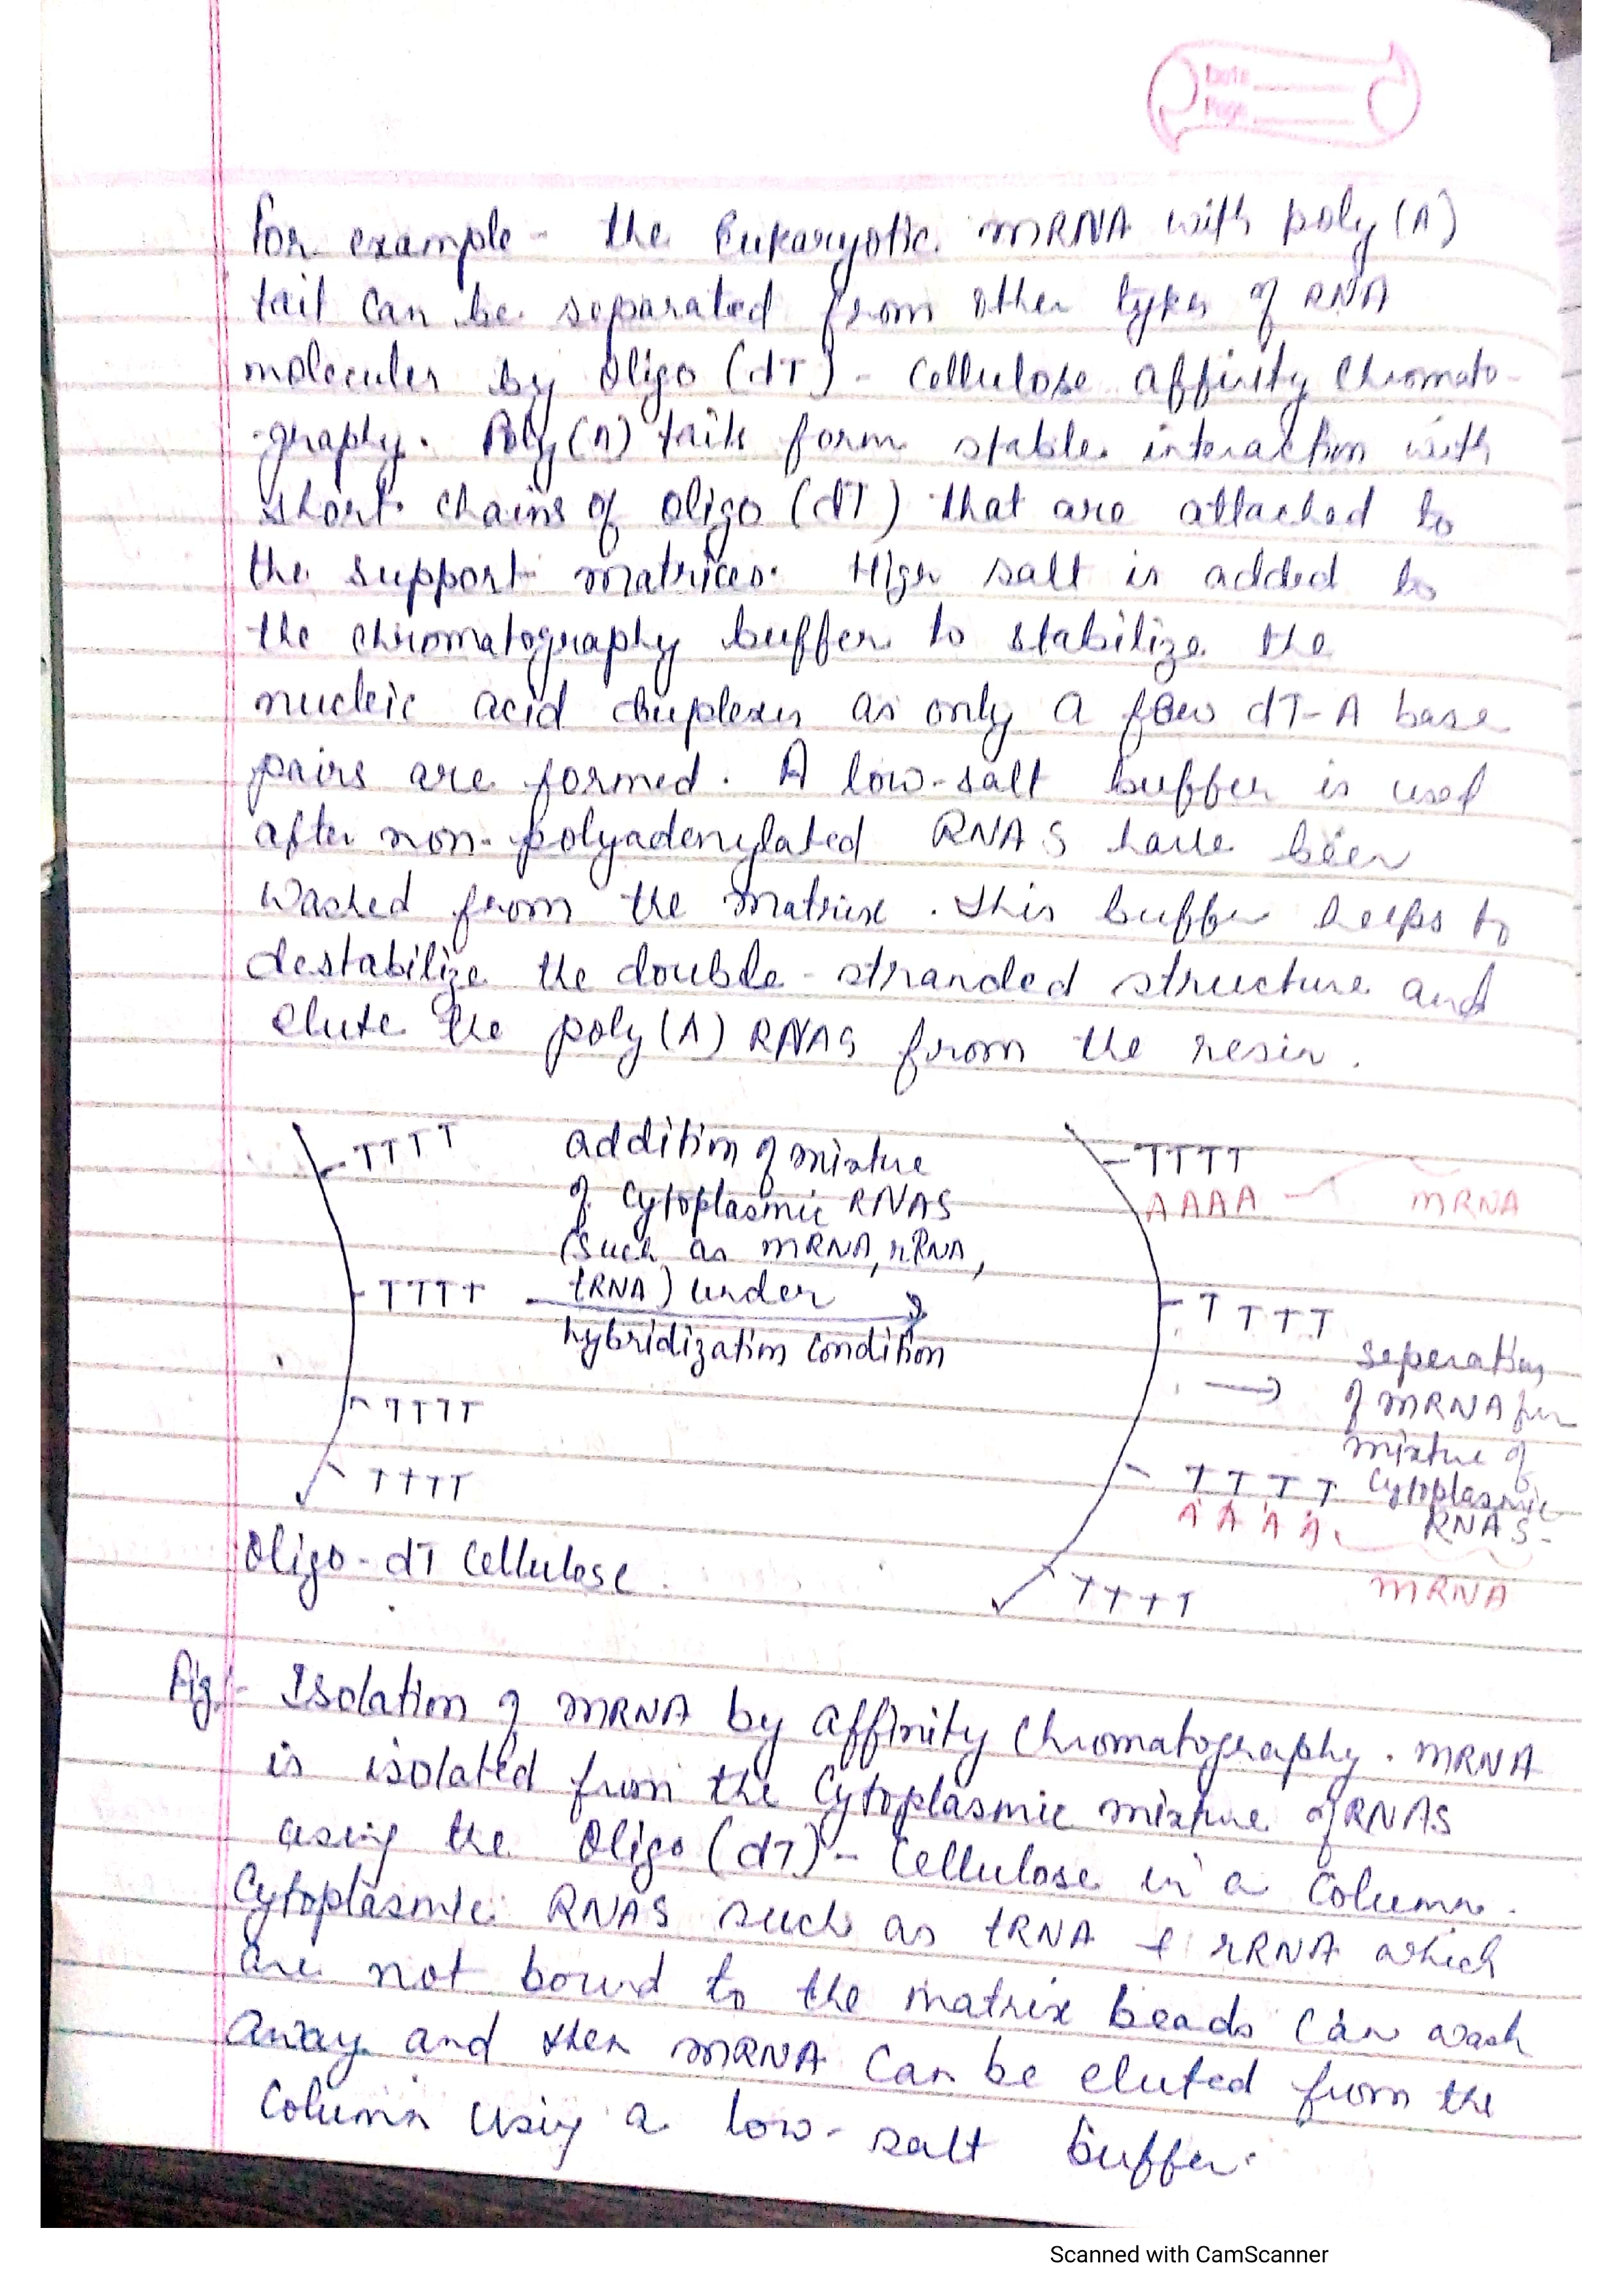 Date
Page
For example - the Eukaryotic mRNA with poly (A)
tail can be separated from other types of RNA
molecules by oligo (dT) - cellulose affinity chromato-
-graphy. Poly (A) tails form stable interaction with
short chains of oligo (dT) that are attached to
the support matrices. High salt is added to
the chromatography buffer to stabilize the
nucleic acid duplexes as only a few dT-A base
pairs are formed. A low-salt buffer is used
after non-polyadenylated RNAS have been
washed from the matrix. This buffer helps to
destabilize the double-stranded structure and
elute the poly (A) RNAS from the resin.
TTTT
addition of mixture
of cytoplasmic RNAS
(such as mRNA, rRNA,
tRNA) under
hybridization condition
TTTT
TTTT
TTTT
Oligo-dT cellulose.
TTTT
AAAA
mRNA
TTTT
seperation
of mRNA
mixture of
cytoplasmic
RNAS-
TTTT
AAAA
mRNA
TTTT
Fig:- Isolation of mRNA by affinity chromatography. mRNA
is isolated from the cytoplasmic mixture of RNAS
using the Oligo (dT) - cellulose in a column.
Cytoplasmic RNAS such as tRNA & rRNA which
are not bound to the matrix beads can wash
away and then mRNA can be eluted from the
column using a low-salt buffer.
Scanned with CamScanner